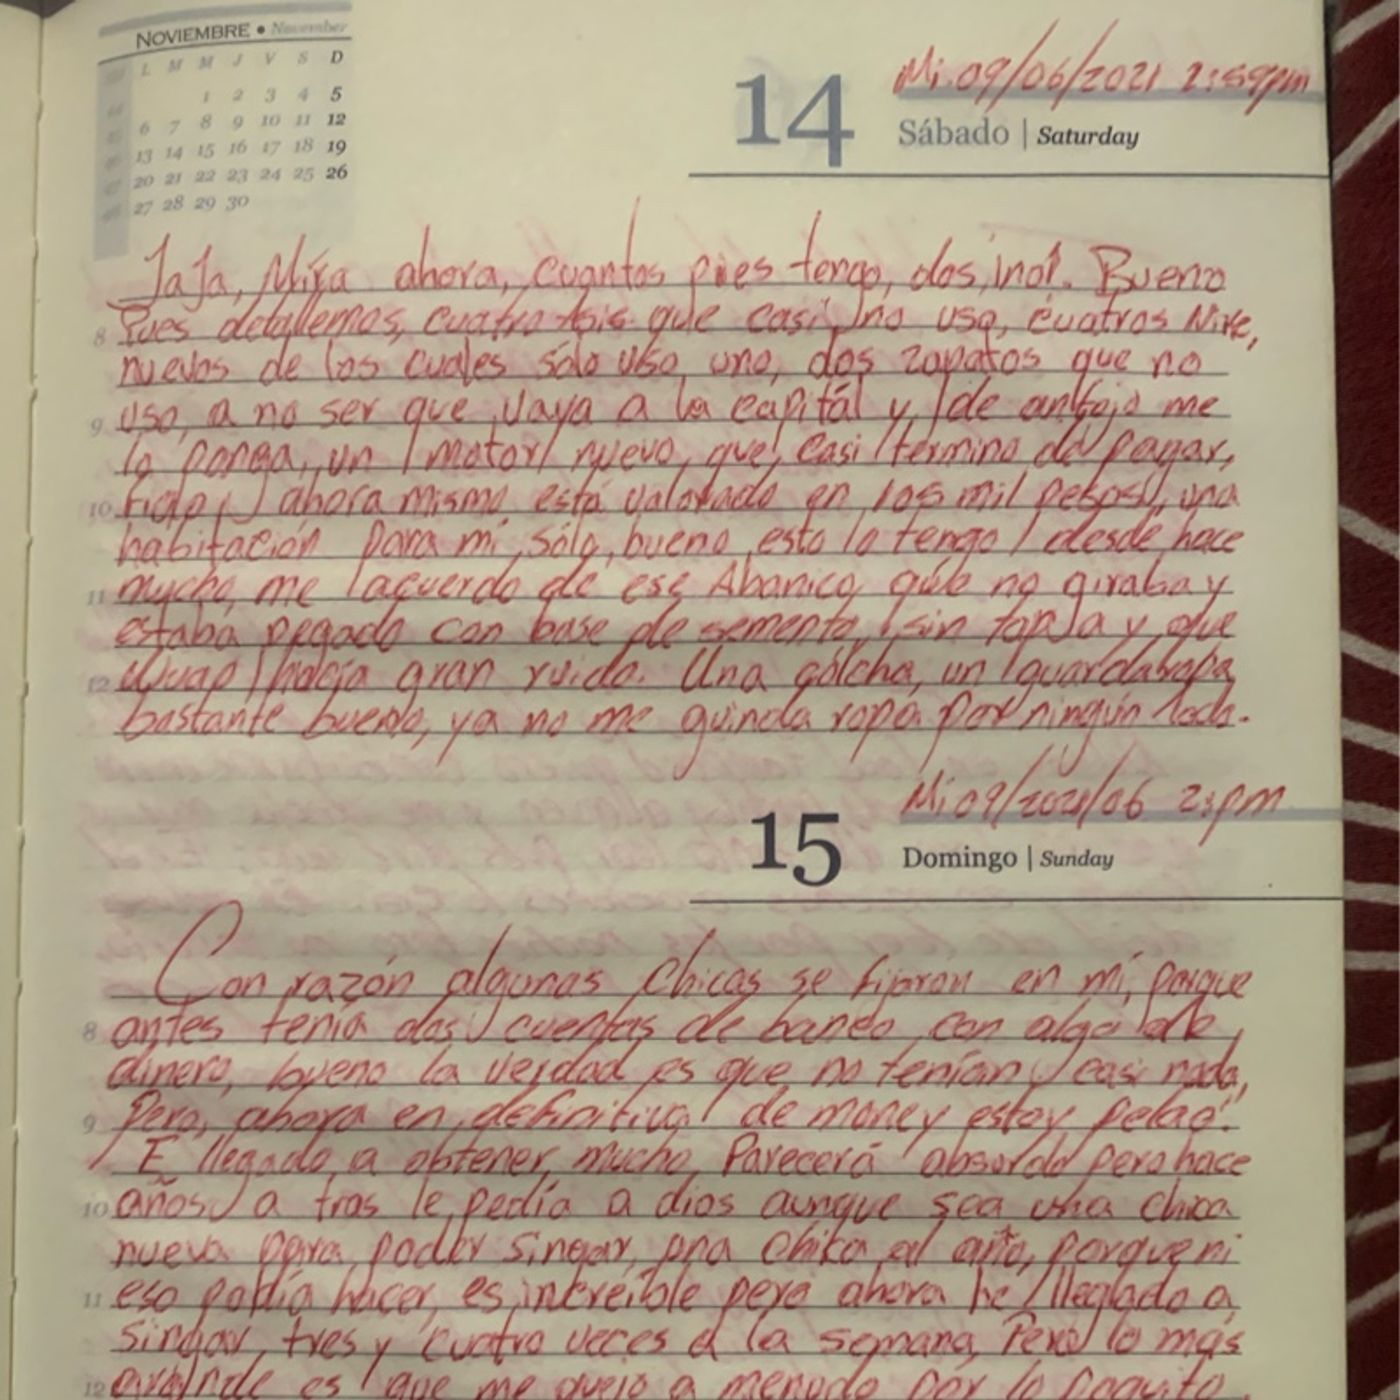 NOVIEMBRE • November
L M M J V S D
1 2 3 4 5
6 7 8 9 10 11 12
13 14 15 16 17 18 19
20 21 22 23 24 25 26
27 28 29 30
Mi.09/06/2021 2:59pm
14
Sábado | Saturday
JaJa, Mira ahora, cuantos pies tengo, dos, ¡no!. Bueno
8 Pues detallemos, cuatro que casi no uso, cuatros Nike,
nuevos de los cuales sólo uso uno, dos zapatos que no
9 uso, a no ser que vaya a la capitál y de antojo me
lo ponga, un motor nuevo, que casi termino de pagar,
10 ahora mismo está valorado en 105 mil pesos, una
habitación para mí sólo, bueno esto lo tengo desde hace
11 mucho, me acuerdo de ese Abanico que no giraba y
estaba pegado con base de semento, sin tapa y que
12 hacía gran ruido. Una colcha, un guardaropa
bastante bueno, ya no me guinda ropa por ningún lado.
Mi 09/2021/06 2:pm
15
Domingo | Sunday
Con razón algunas chicas se fijaron en mí, porque
8 antes tenía dos cuentas de banco con algo de
dinero, bueno la verdad es que no tenían casi nada,
9 Pero, ahora en definitiva de money estoy pelao!
E llegado a obtener mucho, Parecerá absurdo pero hace
10 años a tras le pedía a dios aunque sea una chica
nueva para poder singar, una chica al año, porque ni
11 eso podía hacer, es increíble pero ahora he llegado a
singar tres y cuatro veces a la semana, Pero lo más
12 grande es que me quejo a menudo por lo poquito